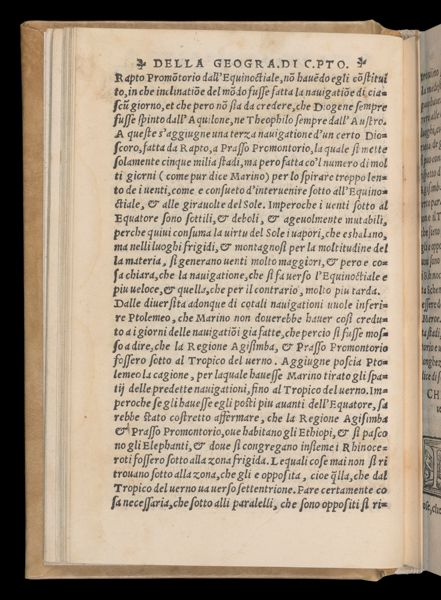 DELLA GEOGRA. DI C. PTO.
Rapto Promõtorio dall'Equinoctiale, nõ hauẽdo egli cõstitui
to, in che inclinatiõe del mõdo fusse fatta la nauigatiõe di cia-
scũ giorno, et che pero nõ sia da credere, che Diogene sempre
fusse spinto dall'Aquilone, ne Theophilo sempre dall'Austro.
A queste s'aggiugne una terza nauigatione d'un certo Dio-
scoro, fatta da Rapto, a Prasso Promontorio, la quale si mette
solamente cinque milia stadi, ma pero fatta co'l numero di mol
ti giorni (come pur dice Marino) per lo spirare troppo len-
to de i uenti, come e consueto d'interuenire sotto all'Equino-
ctiale, & alle girauolte del Sole. Imperoche i uenti sotto al
Equatore sono sottili, & deboli, & ageuolmente mutabili,
perche quiui consuma la uirtu del Sole i uapori, che eshalano,
ma nelli luoghi frigidi, & montagnosi per la moltitudine del
la materia, si generano uenti molto maggiori, & pero e co-
sa chiara, che la nauigatione, che si fa uerso l'Equinoctiale e
piu ueloce, & quella, che per il contrario, molto piu tarda.
Dalle diuersita adonque di cotali nauigationi uuole inferi-
re Ptolemeo, che Marino non douerebbe hauer cosi credu-
to a i giorni delle nauigatiõi gia fatte, che percio si fusse mos-
so a dire, che la Regione Agisimba, & Prasso Promontorio
fossero sotto al Tropico del uerno. Aggiugne poscia Pto-
lemeo la cagione, per laquale hauesse Marino tirato gli spa-
tij delle predette nauigationi, fino al Tropico del uerno. Im-
peroche se gli hauesse egli posti piu auanti dell'Equatore, sa
rebbe stato costretto affermare, che la Regione Agisimba
& Prasso Promontorio, oue habitano gli Ethiopi, & si pasco
no gli Elephanti, & doue si congregano insieme i Rhinoce-
roti fossero sotto alla zona frigida. Le quali cose mai non si ri
trouano sotto alla zona, che gli e opposita, cioe q̃lla, che dal
Tropico del uerno ua uerso settentrione. Pare certamente co
sa necessaria, che sotto alli paralelli, che sono oppositi si ri-